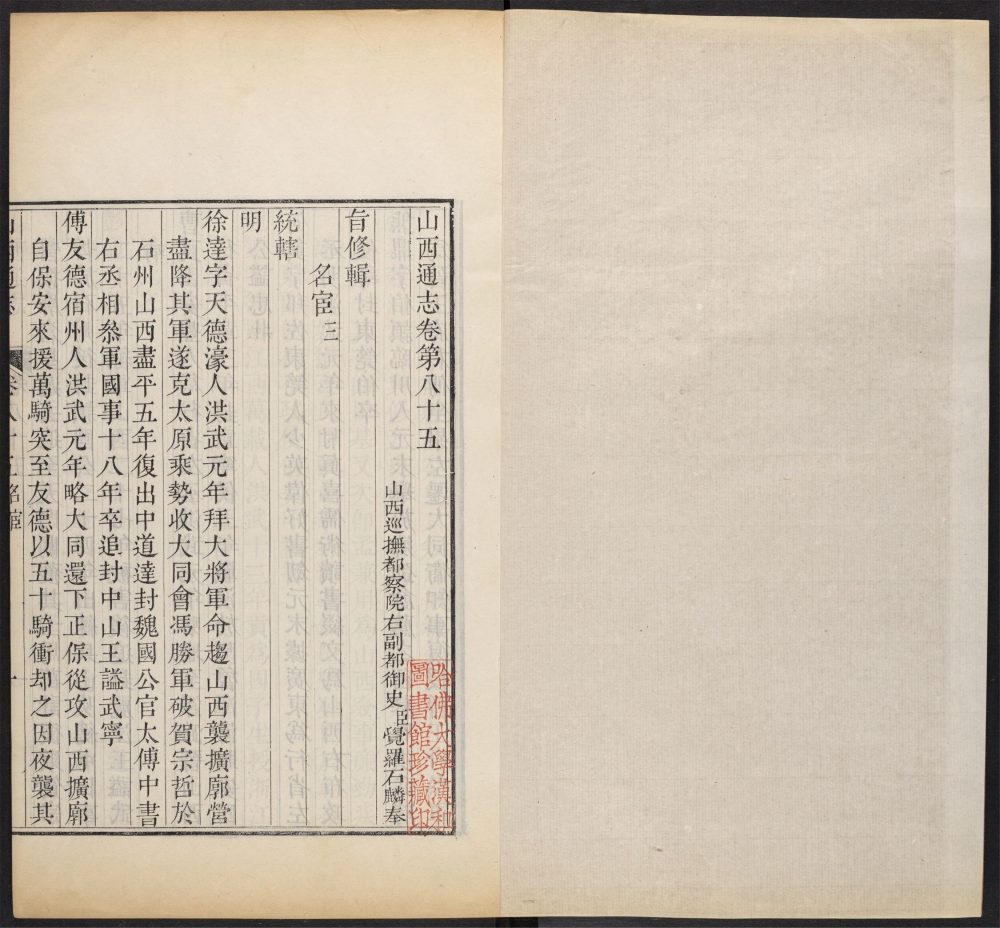 山西通志卷第八十五
山西巡撫都察院右副都御史臣覺羅石麟奉
旨修輯
名宦三
統轄
明
徐達字天德濠人洪武元年拜大將軍命趨山西襲擴廓營
盡降其軍遂克太原乘勢收大同會馮勝軍破賀宗哲於
石州山西盡平五年復出中道達封魏國公官太傅中書
右丞相叅軍國事十八年卒追封中山王謚武寧
傅友德宿州人洪武元年略大同還下正保從攻山西擴廓
自保安來援萬騎突至友德以五十騎衝却之因夜襲其
山西通志 卷八十五名宦 一
哈佛大學漢和
圖書館珍藏印